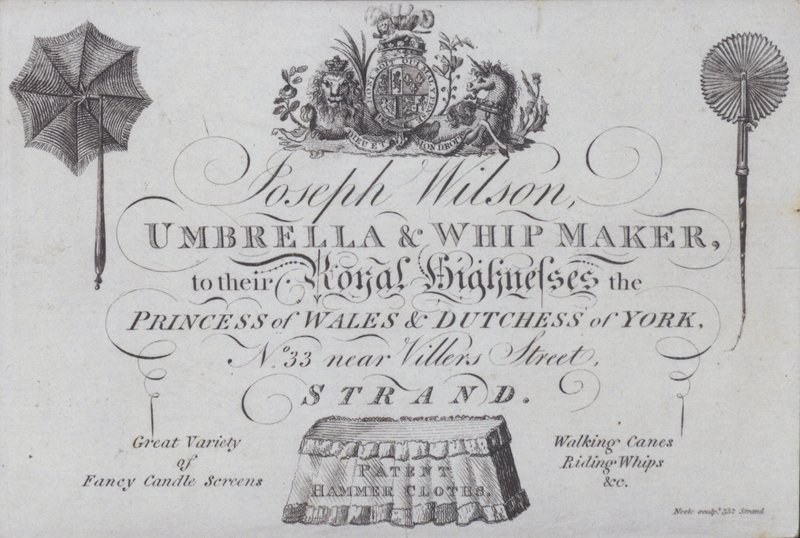 HONI SOIT QUI MAL Y PENSE
DIEU ET MON DROIT
Joseph Wilson,
UMBRELLA & WHIP MAKER,
to their Royal Highneſses the
PRINCESS of WALES & DUTCHESS of YORK,
No. 33 near Villers Street,
STRAND.
Great Variety
of
Fancy Candle Screens
PATENT
HAMMER CLOTHS.
Walking Canes
Riding Whips
&c.
sculpt. 352 Strand